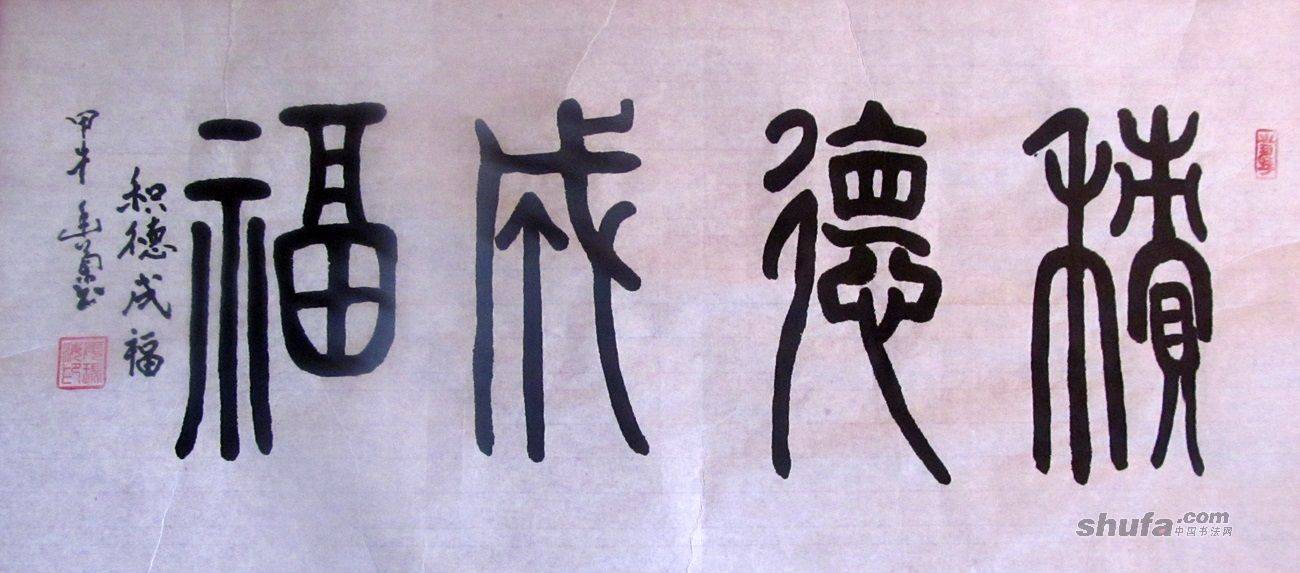 積德成福
积德成福
甲午
shufa.com
中国书法网